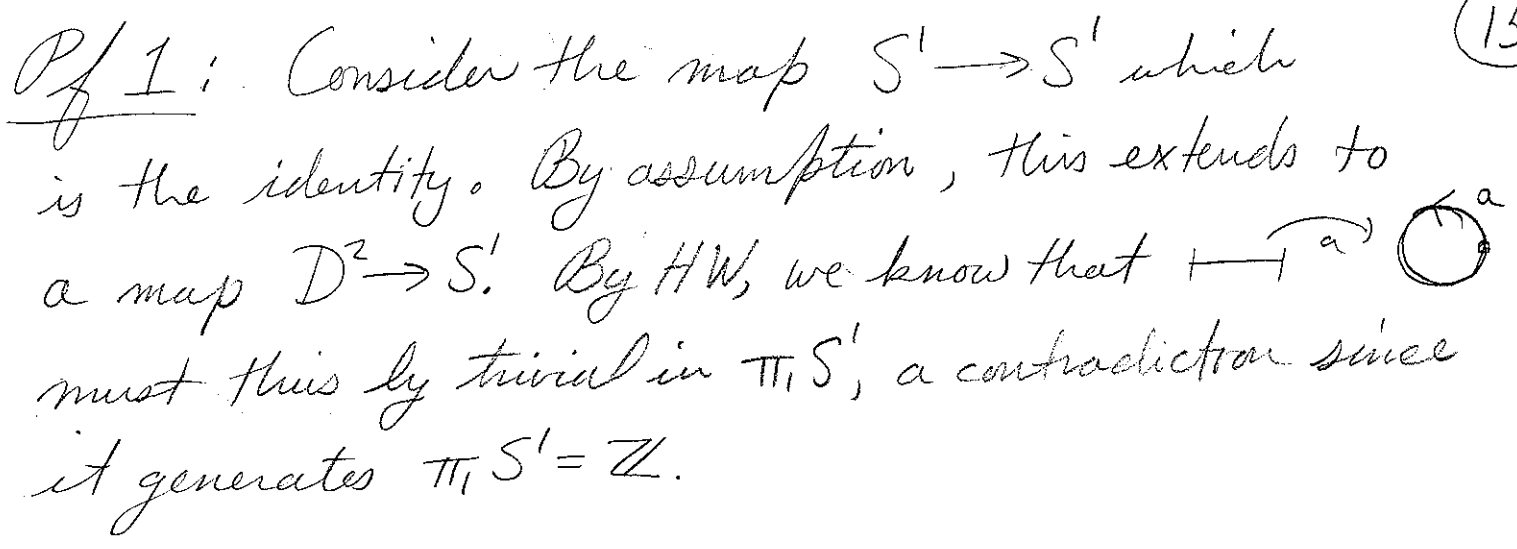 15
Pf 1: Consider the map S¹ → S¹ which
is the identity. By assumption, this extends to
a map D² → S¹. By HW, we know that a a
must thus by trivial in π₁S¹, a contradiction since
it generates π₁S¹ = ℤ.